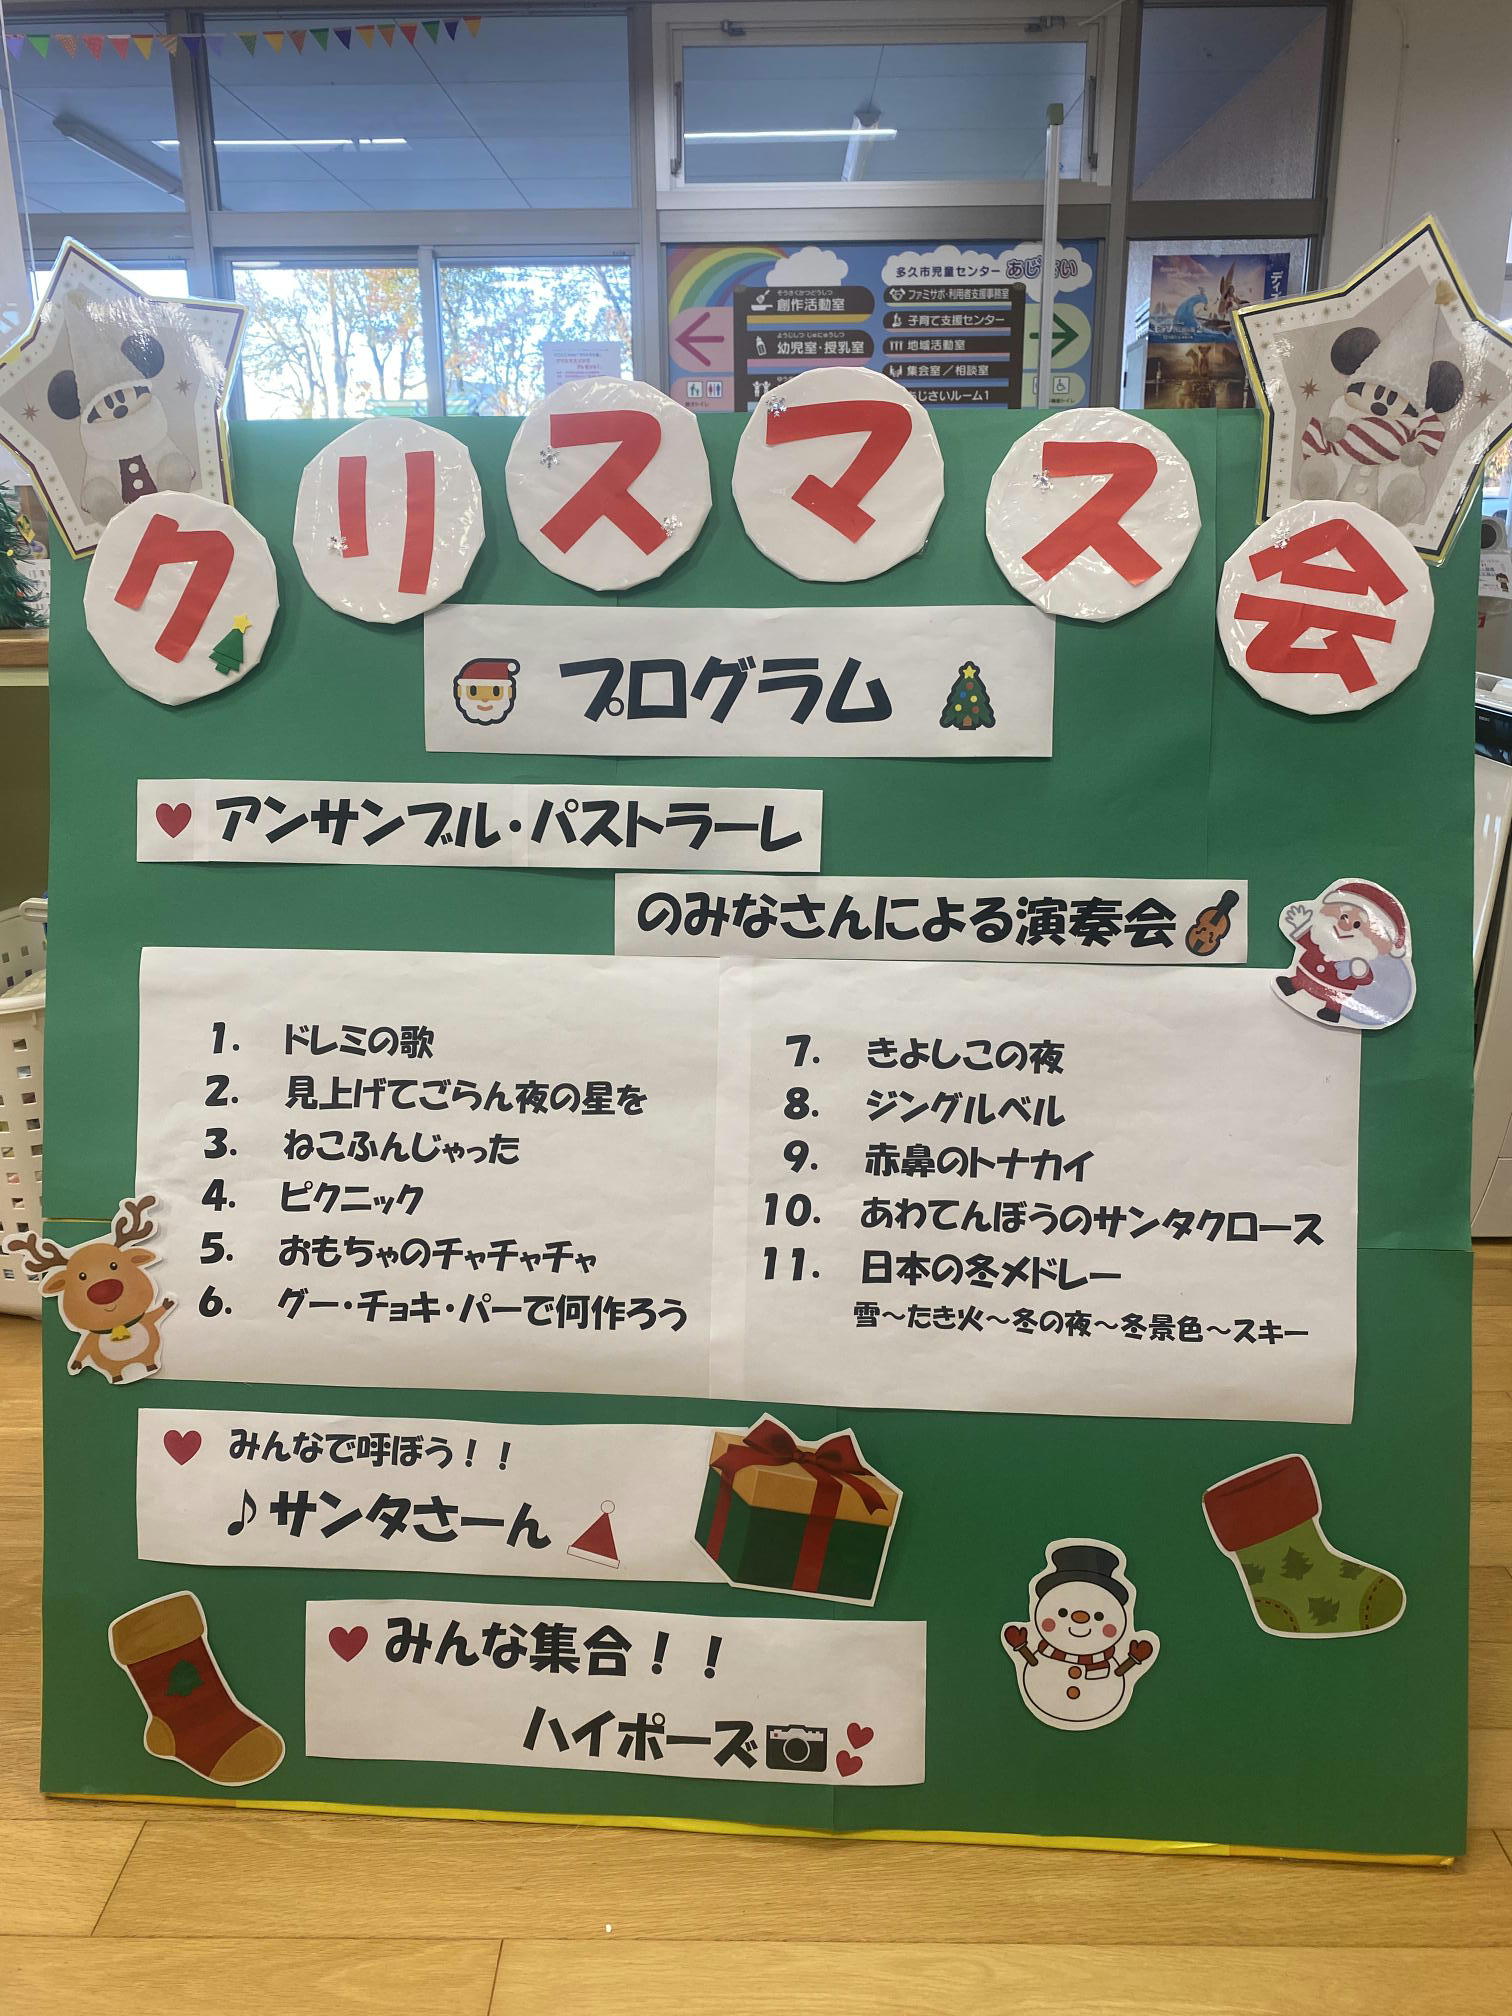 多久市児童センター あじさい
そうさくかつどうしつ
創作活動室
ようじしつ じゅにゅうしつ
幼児室・授乳室
ファミサポ・利用者支援事務室
子育て支援センター
地域活動室
集会室／相談室
じさいルーム1
クリスマス会
プログラム
アンサンブル・パストラーレ
のみなさんによる演奏会
1. ドレミの歌
2. 見上げてごらん夜の星を
3. ねこふんじゃった
4. ピクニック
5. おもちゃのチャチャチャ
6. グー・チョキ・パーで何作ろう
7. きよしこの夜
8. ジングルベル
9. 赤鼻のトナカイ
10. あわてんぼうのサンタクロース
11. 日本の冬メドレー
雪～たき火～冬の夜～冬景色～スキー
みんなで呼ぼう！！
♪サンタさーん
みんな集合！！
ハイポーズ